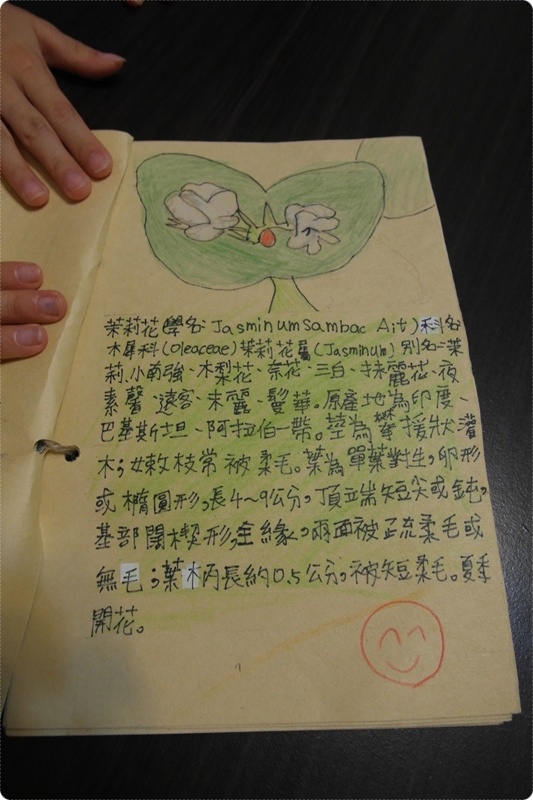 茉莉花(學名: Jasminum sambac Ait)科名:
木犀科(Oleaceae)茉莉花屬(Jasminum)別名:茉
莉、小南強、木梨花、奈花、三白、抹麗花、夜
素馨、遠客、末麗、鬘華。原產地為印度、
巴基斯坦、阿拉伯一帶。莖為攀援狀灌
木;嫩枝常被柔毛。葉為單葉對生,卵形
或橢圓形,長4~9公分,頂端短尖或鈍,
基部闊楔形,全緣,兩面被疏柔毛或
無毛;葉柄長約0.5公分,被短柔毛。夏季
開花。